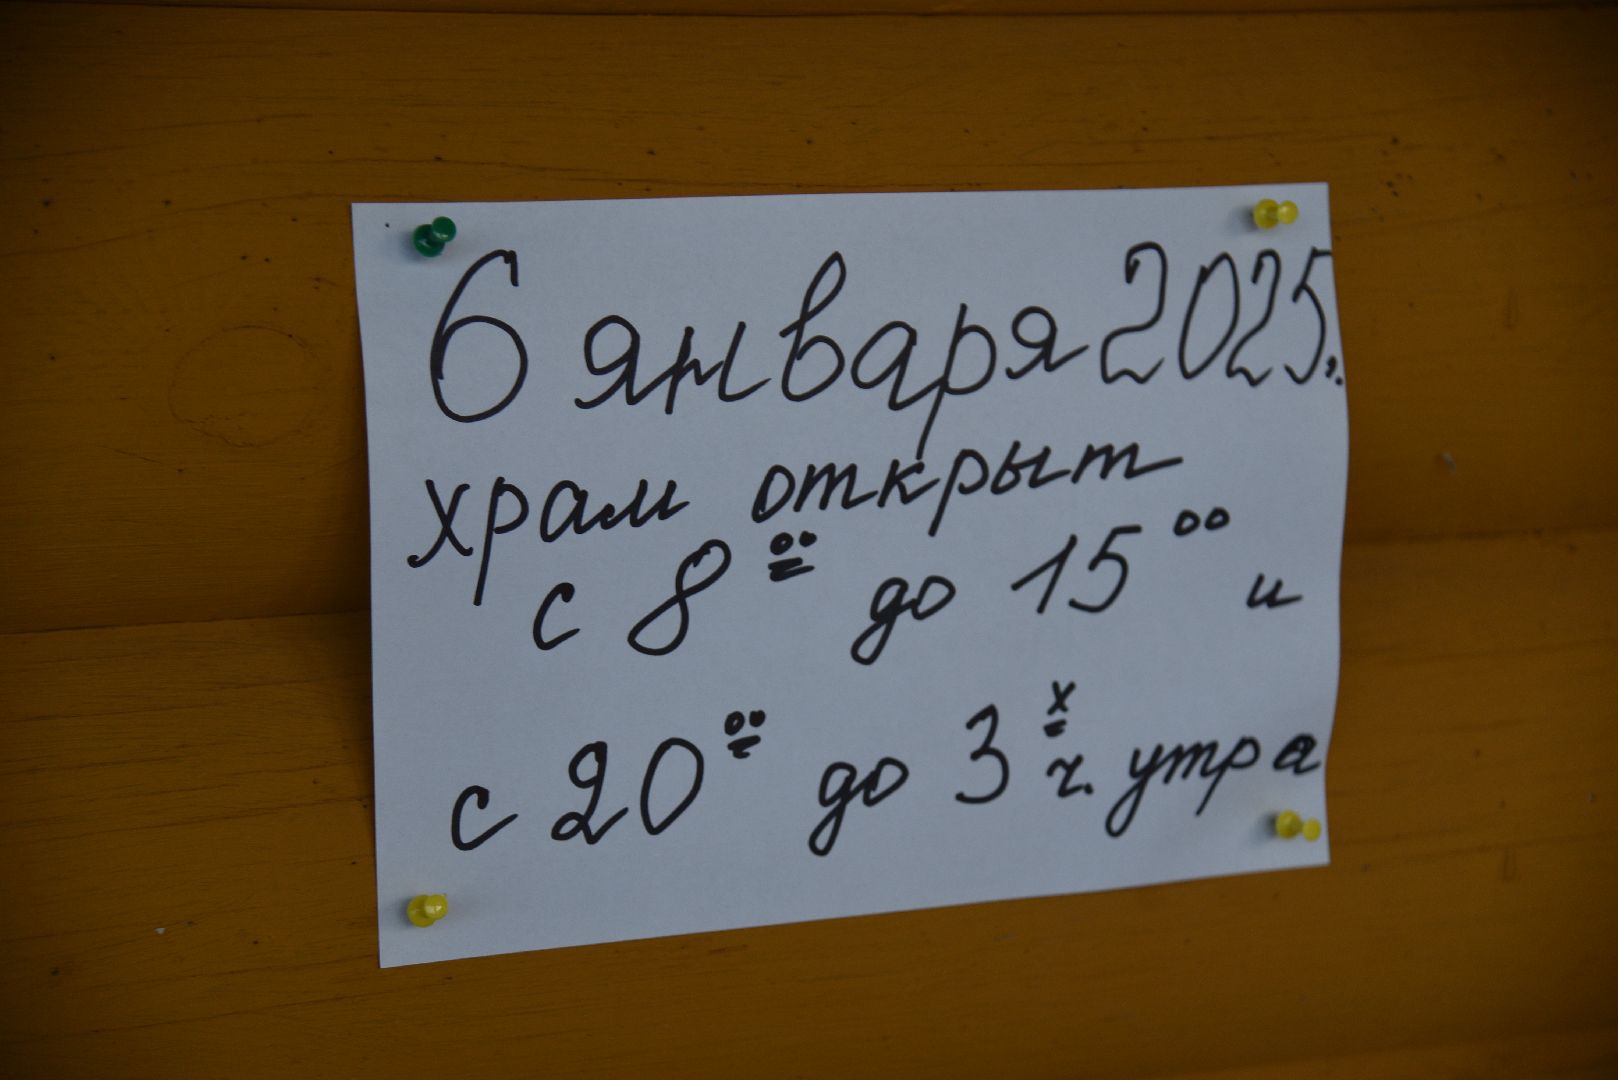 6 января 2025г.
храм открыт
с 8⁰⁰ до 15⁰⁰ и
с 20⁰⁰ до 3ˣ ч. утра